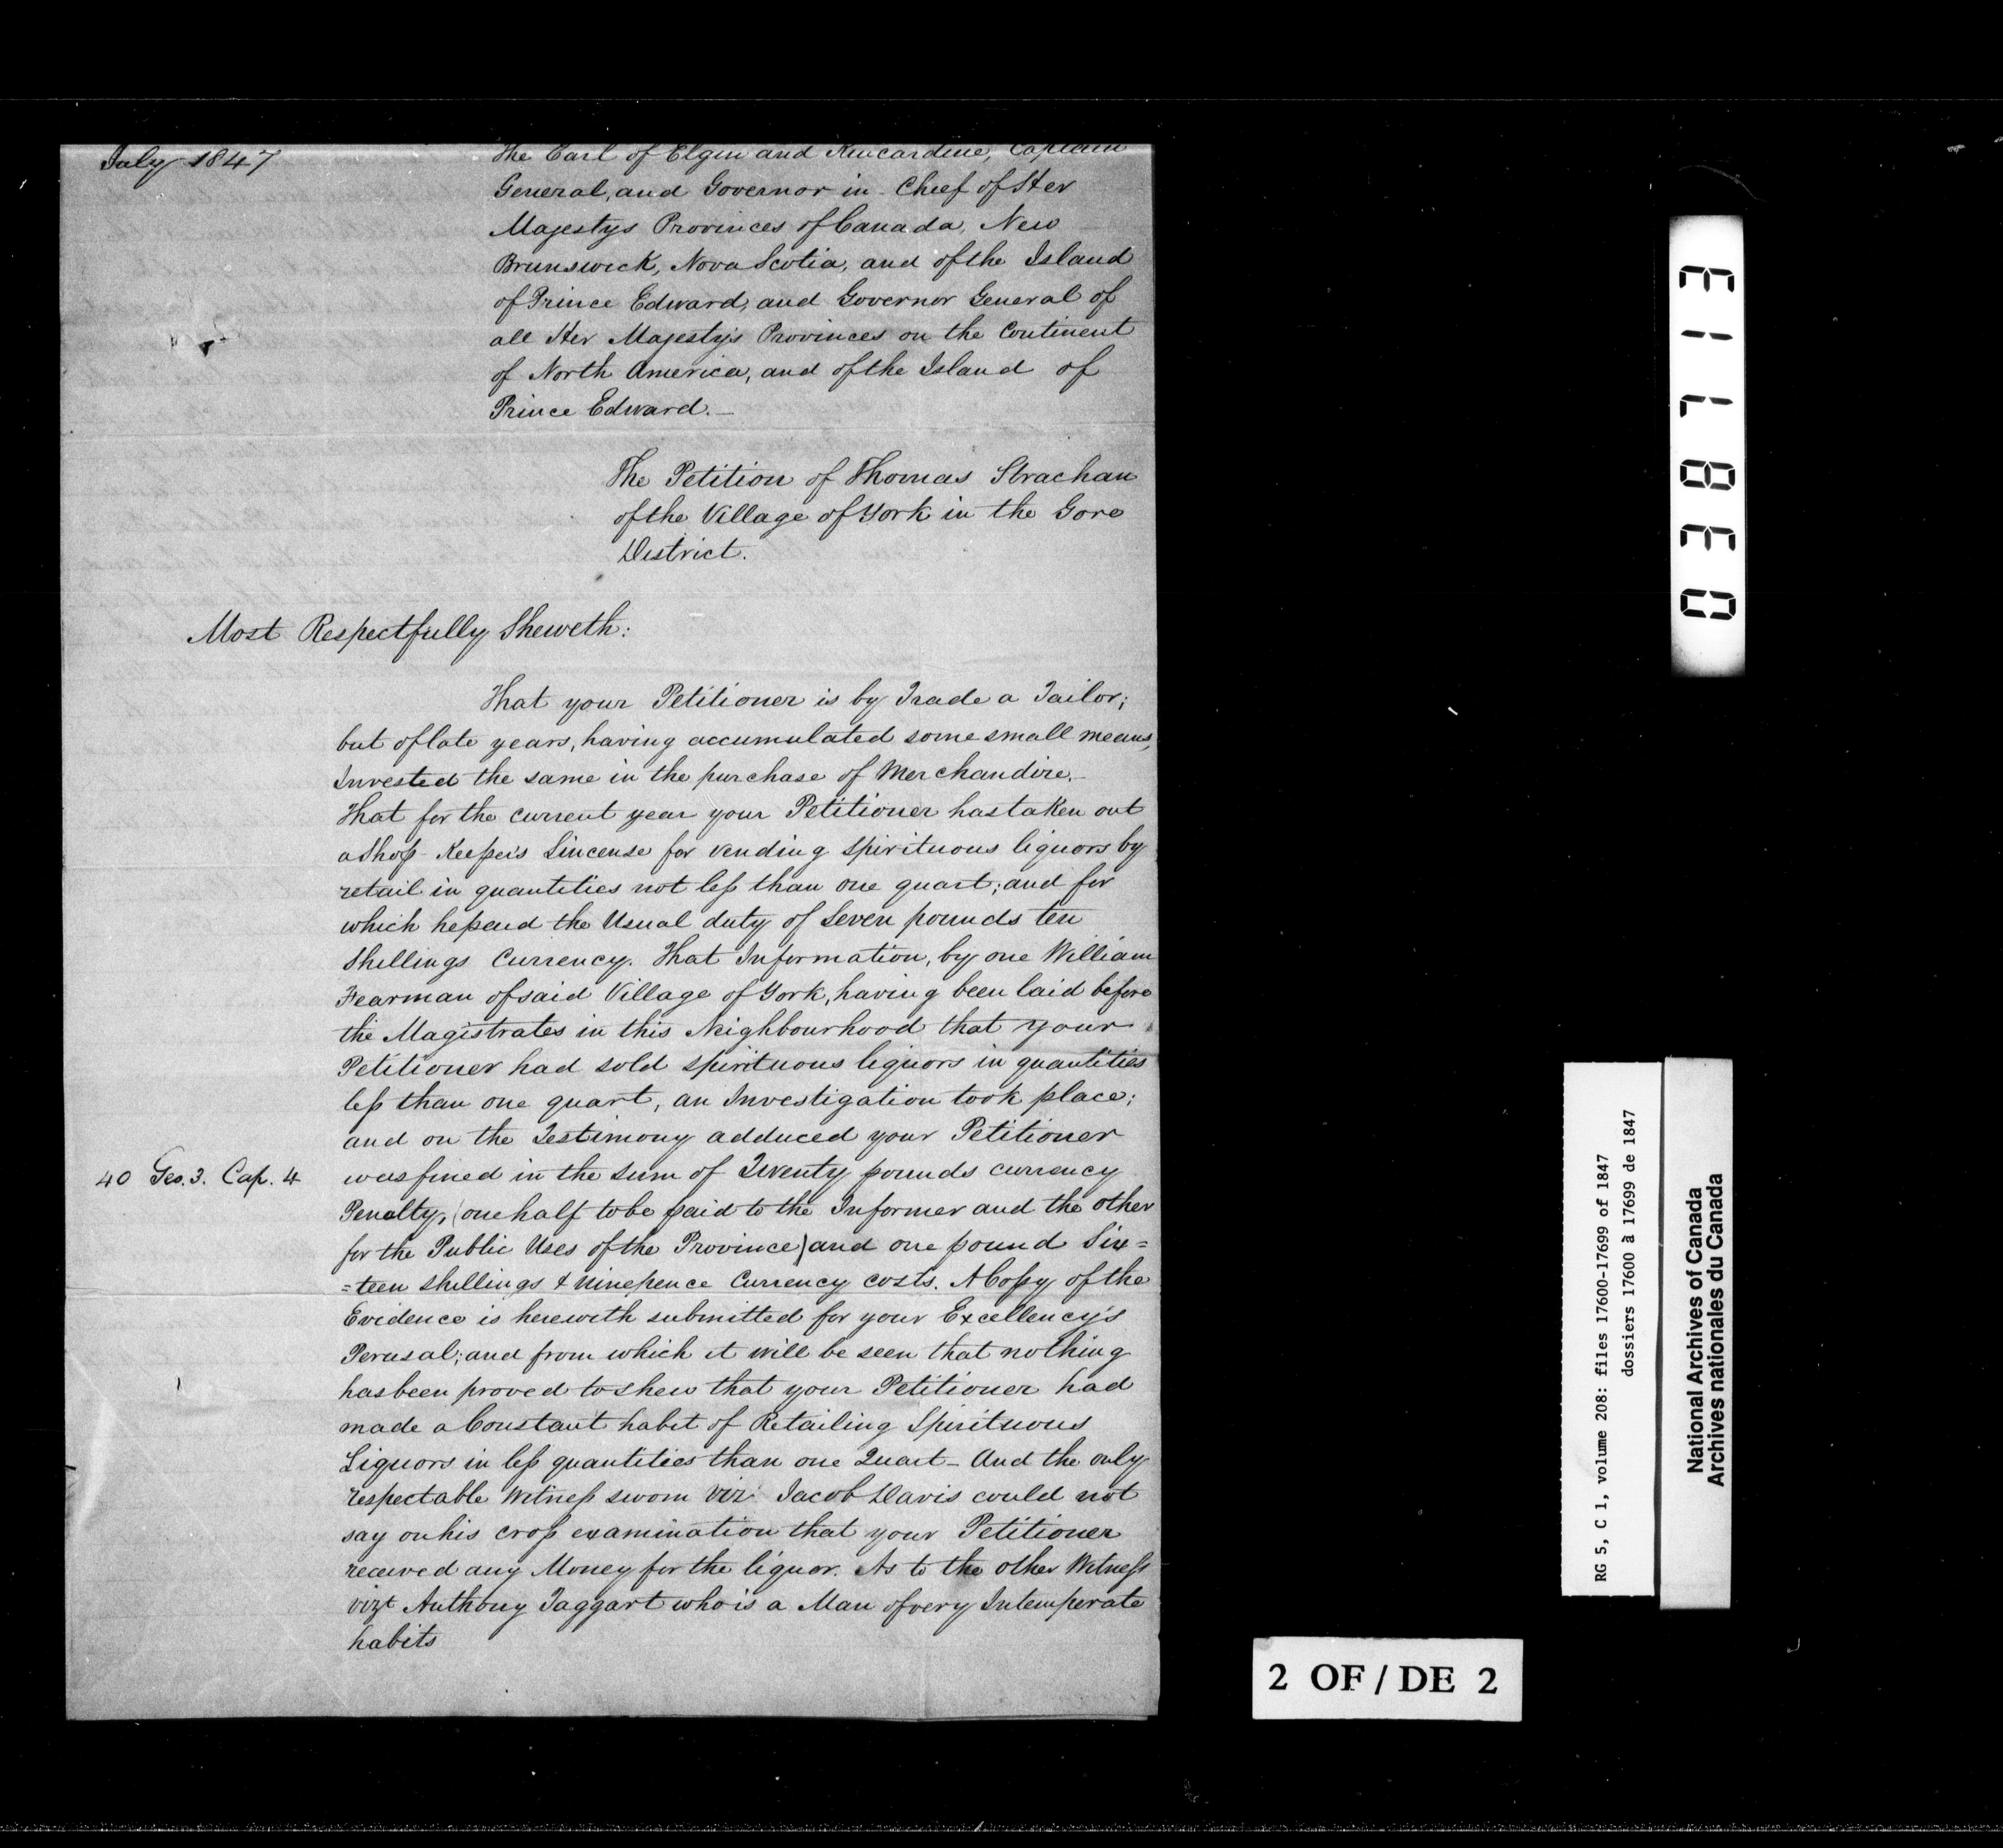 July 1847
The Earl of Elgin and Kincardine, Captain
General, and Governor in Chief of Her
Majestys Provinces of Canada, New
Brunswick, Nova Scotia, and of the Island
of Prince Edward, and Governor General of
all Her Majesty's Provinces on the Continent
of North America, and of the Island of
Prince Edward.—
The Petition of Thomas Strachan
of the Village of York in the Gore
District.
Most Respectfully Sheweth:
That your Petitioner is by Trade a Tailor;
but of late years, having accumulated some small means,
Invested the same in the purchase of Merchandize.—
That for the current year your Petitioner has taken out
a Shop-Keeper's Lincense for vending spirituous liquors by
retail in quantities not less than one quart; and for
which he paid the Usual duty of Seven pounds ten
Shillings Currency. That Information, by one William
Fearman of said Village of York, having been laid before
the Magistrates in this Neighbourhood that your
Petitioner had sold spirituous liquors in quantities
less than one quart, an Investigation took place;
and on the Testimony adduced your Petitioner
40 Geo. 3. Cap. 4 was fined in the Sum of Twenty pounds currency
Penalty, (one half to be paid to the Informer and the other
for the Public Uses of the Province) and one pound Six=
=teen shillings & ninepence Currency costs. A Copy of the
Evidence is herewith submitted for your Excellency's
Perusal; and from which it will be seen that nothing
has been proved to shew that your Petitioner had
made a Constant habit of Retailing Spirituous
Liquors in less quantities than one Quart – And the only
respectable Witness sworn viz: Jacob Davis could not
say on his cross examination that your Petitioner
received any Money for the liquor. As to the other Witness
vizt Anthony Taggart who is a Man of very Intemperate
habits
037813
RG 5, C 1, volume 208: files 17600-17699 of 1847
dossiers 17600 à 17699 de 1847
National Archives of Canada
Archives nationales du Canada
2 OF / DE 2